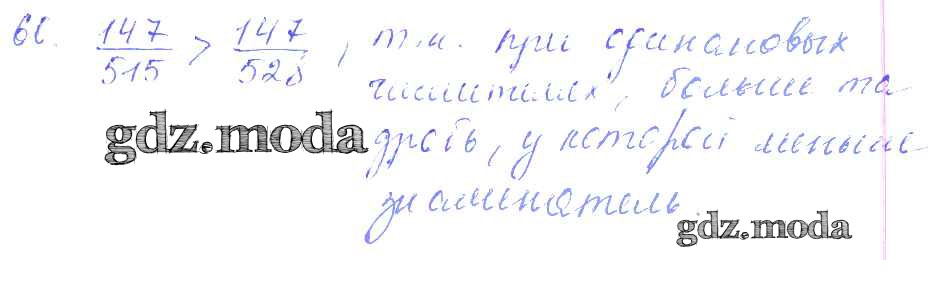 66. 147/515 > 147/528, т.к. при одинаковых
числителях, больше та
gdz.moda
дробь, у которой меньше
знаменатель.
gdz.moda